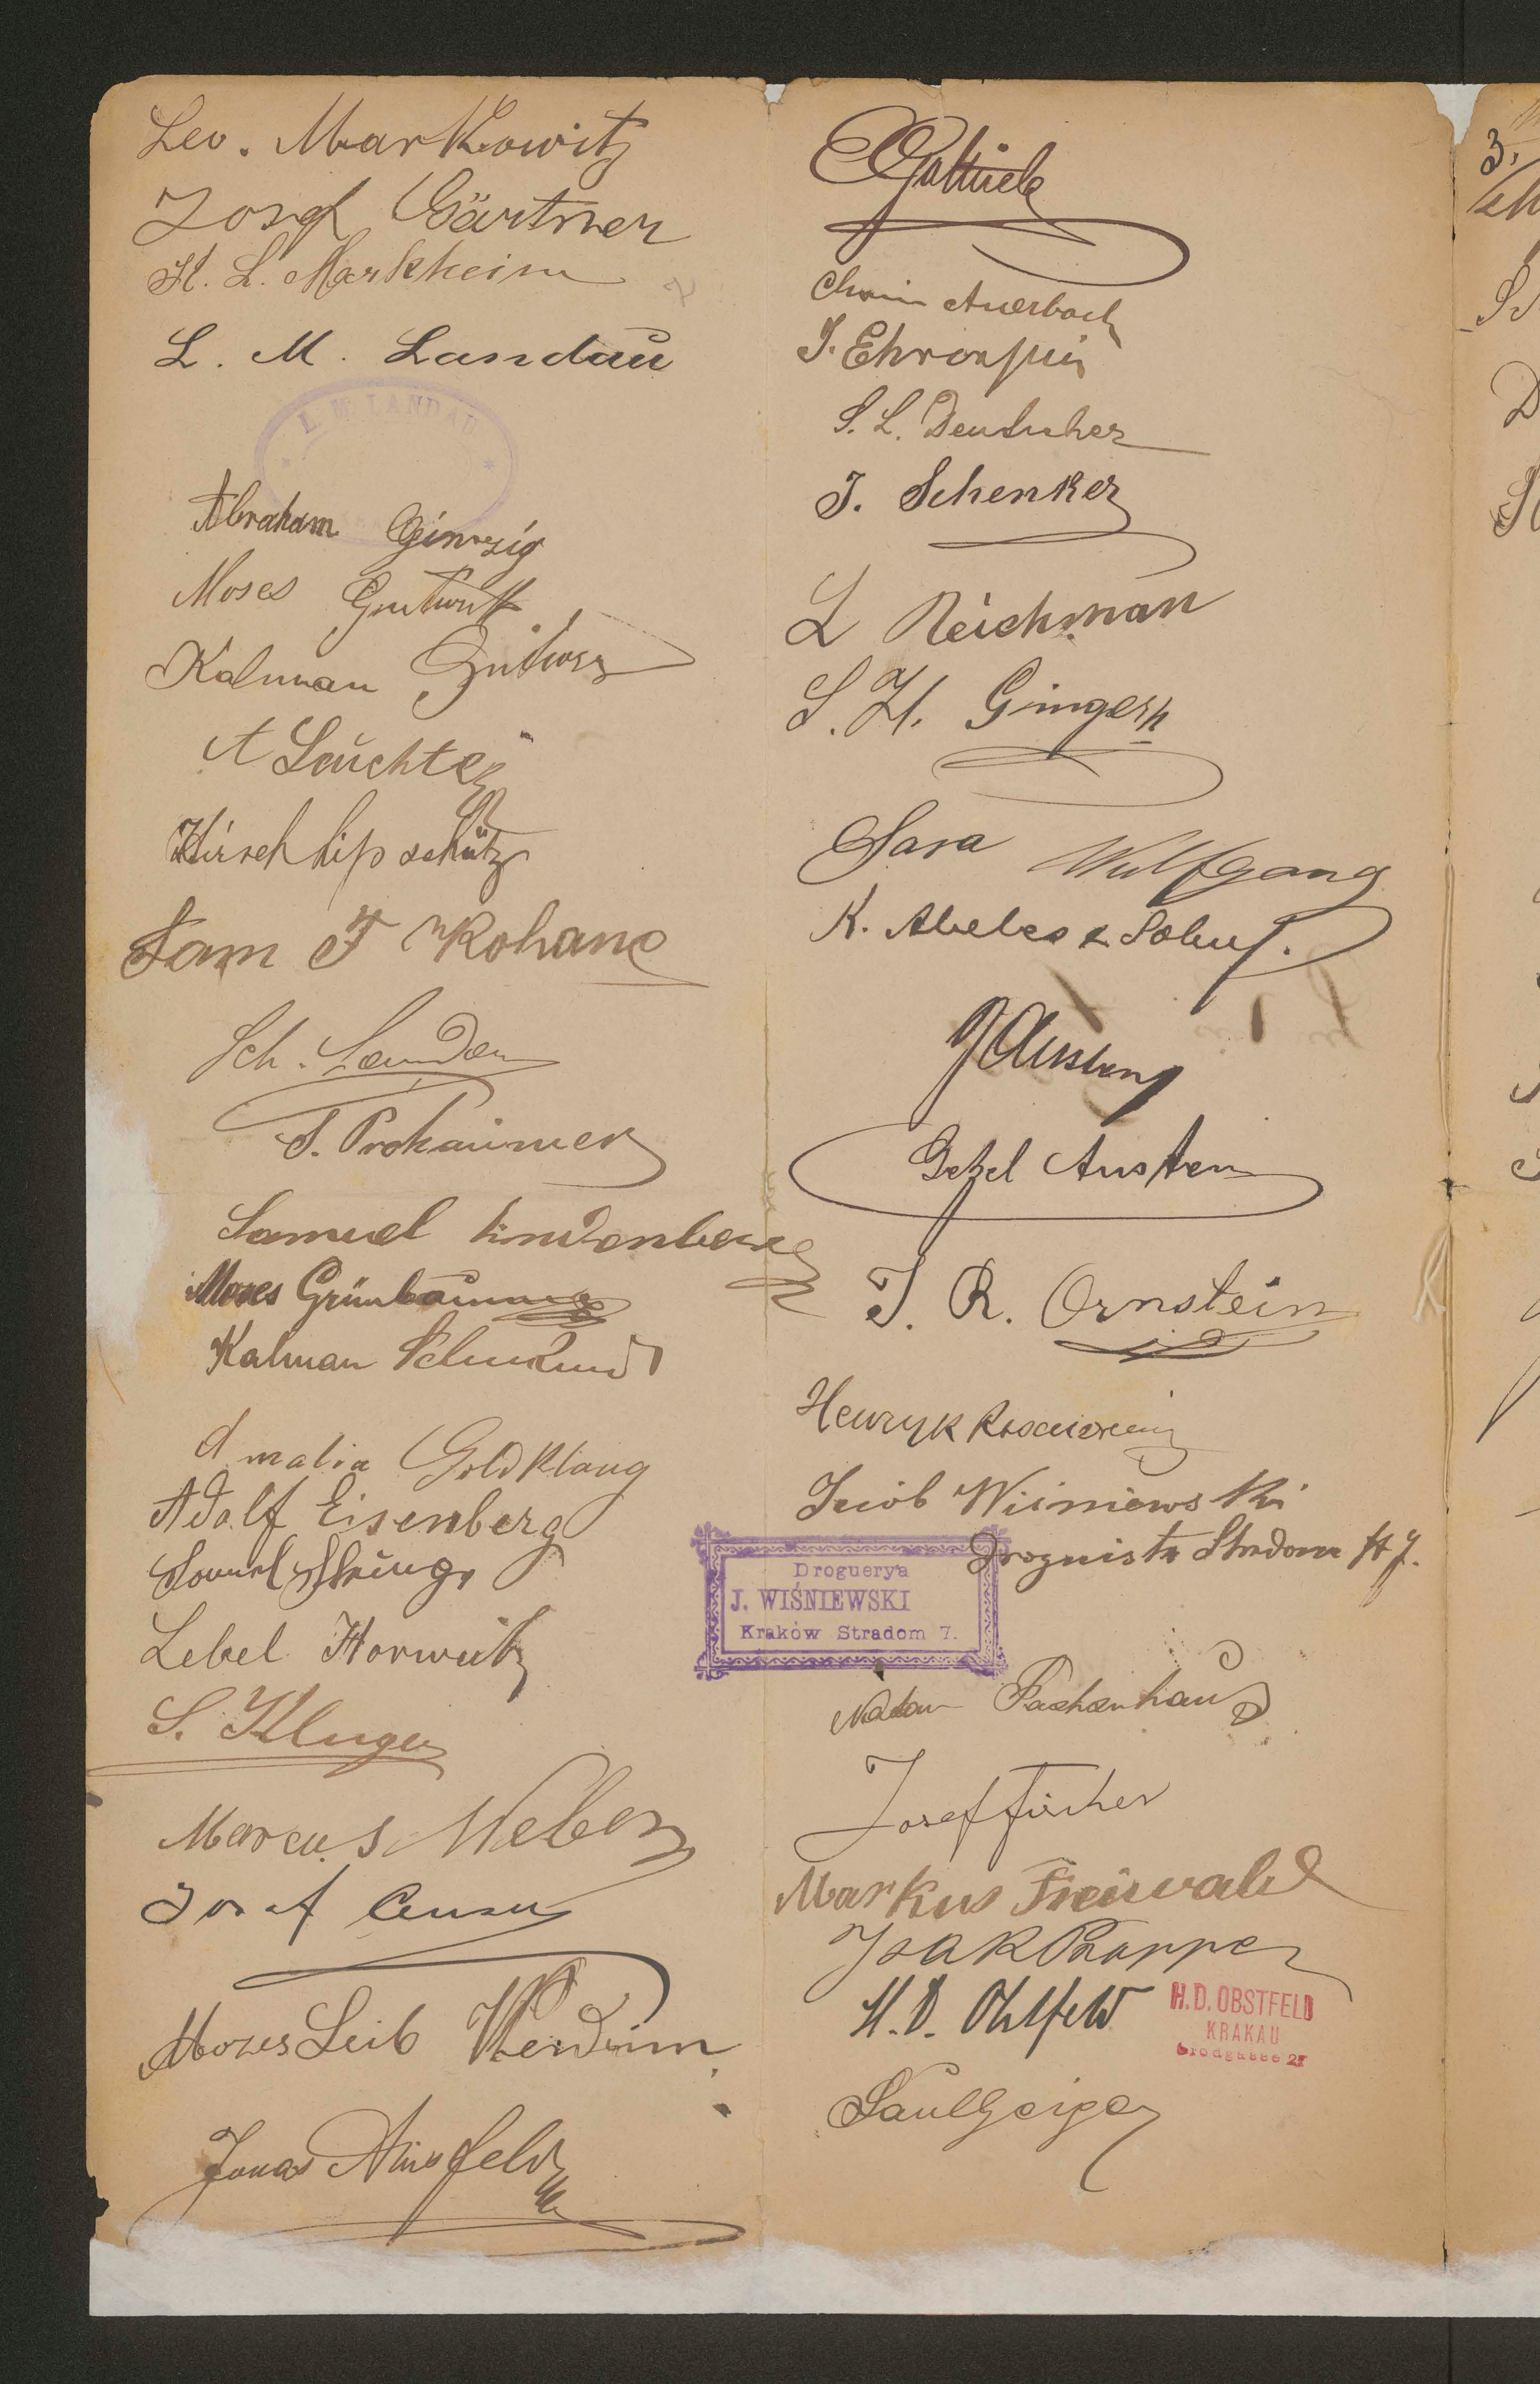 Leo. Markowitz
Josef Gärtner
H. L. Markheim
L. M. Landau
L. M. LANDAU
Abraham Ginzig
Moses Gutwirt
Kalman
A Leuchter
Hirsch Lipschütz
Sam F Kohane
Sch. Landau
S. Prokaimer
Samuel Lindenberg
Moses Grünbaum
Kalman
Amalia Goldklang
Adolf Eisenberg
Samuel
Lebel Horwitz
S. Kluger
Marcus Weber
Josef
Mozes Leib Wendum
Jonas
Gottlieb
Chaim Auerbach
J. Ehrenpreis
S. L. Deutscher
J. Schenker
L Reichman
S. H.
Sara Wulfgang
K. Abeles & Sohn
J Austern
Getzel Austern
J. R. Ornstein
Henryk
Jacob Wiśniewski
Droguista Stradom 7.
Droguerya
J. WIŚNIEWSKI
Kraków Stradom 7.
Natan Fachenhaus
Josef Fischer
Markus Freiwald
Isak Rapper
H. D. Obstfeld
H. D. OBSTFELD
KRAKAU
Grodgasse
Saul Geiger
3.